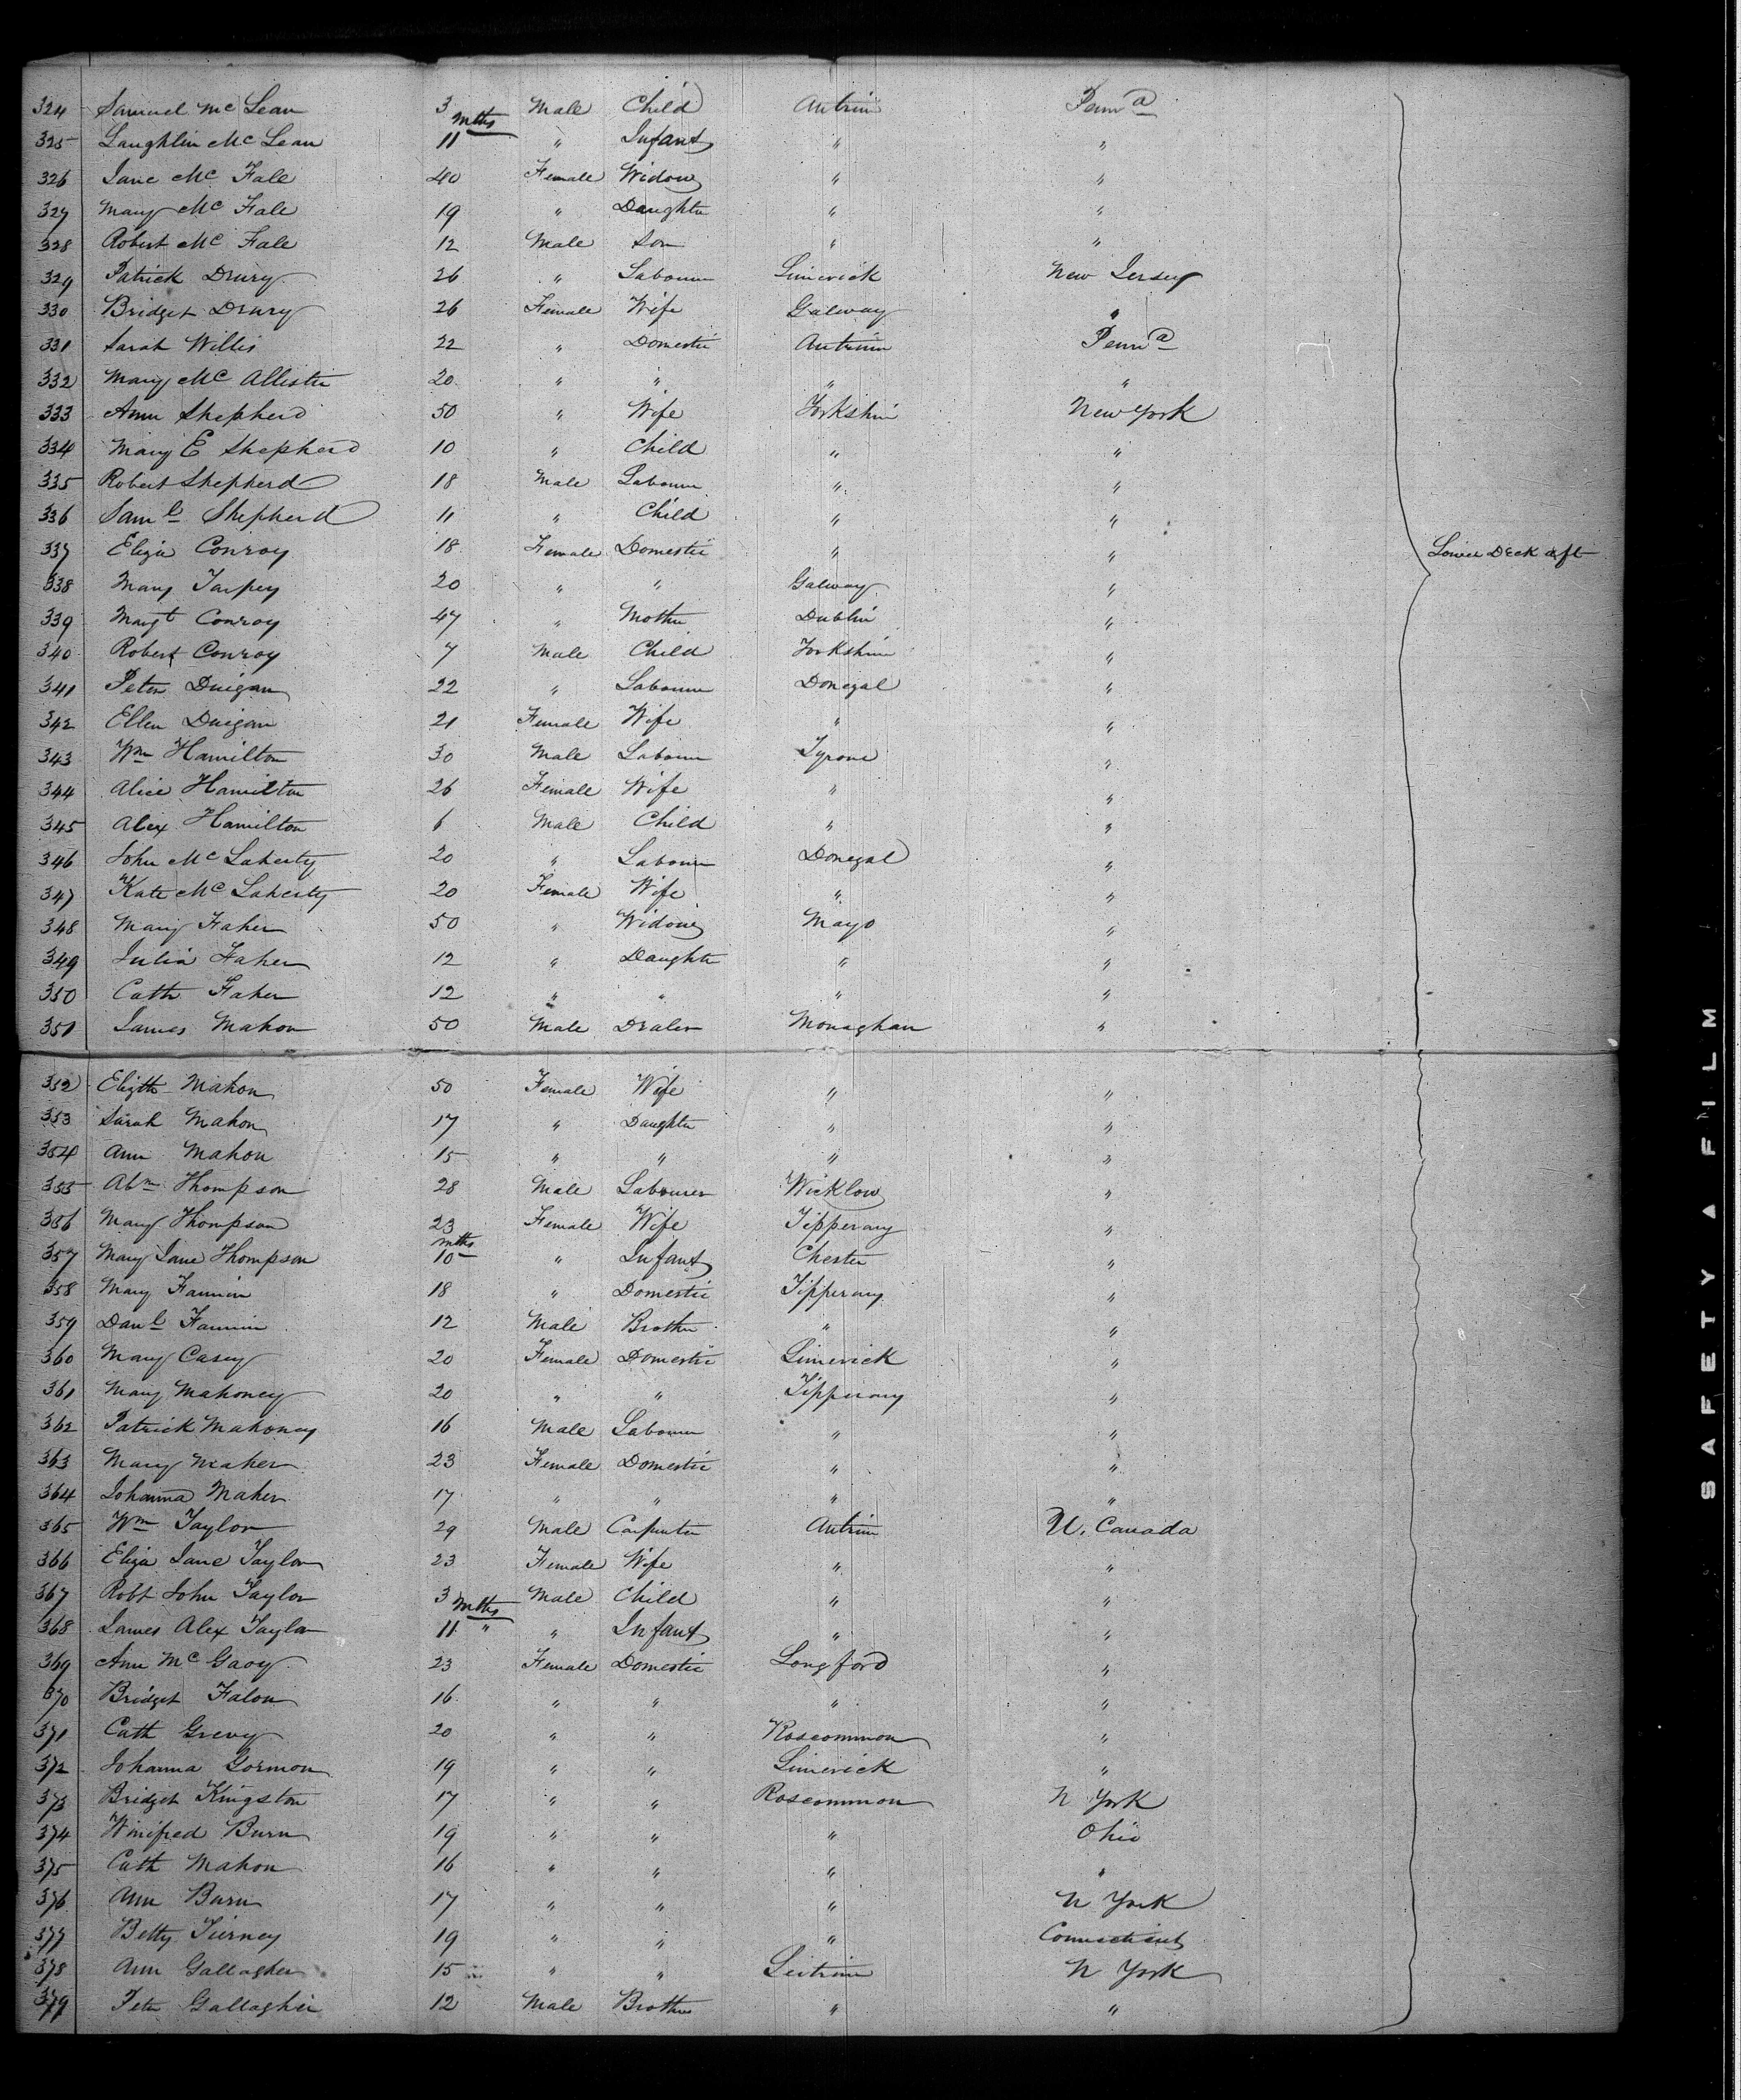 324 Samuel Mc Lean 3 Male Child Antrim Penn a
325 Laughlin Mc Lean 11 mths " Infant " "
326 Jane Mc Fale 40 Female Widow " "
327 Mary Mc Fale 19 " Daughter " "
328 Robert Mc Fale 12 Male Son " "
329 Patrick Drury 26 " Labourer Limerick New Jersey
330 Bridget Drury 26 Female Wife Galway "
331 Sarah Willis 22 " Domestic Antrim Penn a
332 Mary Mc Allister 20 " " " "
333 Ann Shepherd 50 " Wife Yorkshire New York
334 Mary E Shepherd 10 " Child " "
335 Robert Shepherd 18 Male Labourer " "
336 Saml Shepherd 11 " Child " "
337 Eliza Conroy 18 Female Domestic " " Lower Deck aft
338 Mary Tarpey 20 " " Galway "
339 Margt Conroy 47 " Mother Dublin "
340 Robert Conroy 7 Male Child Yorkshire "
341 Peter Duigan 22 " Labourer Donegal "
342 Ellen Duigan 21 Female Wife " "
343 Wm Hamilton 30 Male Labourer Tyrone "
344 Alice Hamilton 26 Female Wife " "
345 Alex Hamilton 6 Male Child " "
346 John Mc Laherty 20 " Labourer Donegal "
347 Kate Mc Laherty 20 Female Wife " "
348 Mary Faher 50 " Widow Mayo "
349 Julia Faher 12 " Daughter " "
350 Cath Faher 12 " " " "
351 James Mahon 50 Male Dealer Monaghan "
352 Elizth Mahon 50 Female Wife " "
353 Sarah Mahon 17 " Daughter " "
354 Ann Mahon 15 " " " "
355 Abm Thompson 28 Male Labourer Wicklow "
356 Mary Thompson 23 Female Wife Tipperary "
357 Mary Jane Thompson 10 mths " Infant Chester "
358 Mary Fannin 18 " Domestic Tipperary "
359 Danl Fannin 12 Male Brother " "
360 Mary Casey 20 Female Domestic Limerick "
361 Mary Mahoney 20 " " Tipperary "
362 Patrick Mahoney 16 Male Labourer " "
363 Mary Maher 23 Female Domestic " "
364 Johanna Maher 17 " " " "
365 Wm Taylor 29 Male Carpenter Antrim U. Canada
366 Eliza Jane Taylor 23 Female Wife " "
367 Robt John Taylor 3 Male Child " "
368 James Alex Taylor 11 mths " " Infant " "
369 Ann Mc Gaoy 23 Female Domestic Longford "
370 Bridget Falon 16 " " " "
371 Cath Grevy 20 " " Roscommon "
372 Johanna Gormon 19 " " Limerick "
373 Bridget Kingston 17 " " Roscommon N York
374 Winifred Burn 19 " " " Ohio
375 Cath Mahon 16 " " " "
376 Ann Burn 17 " " " N York
377 Betty Tierney 19 " " " Connecticut
378 Ann Gallagher 15 " " Leitrim N York
379 Peter Gallagher 12 Male Brother " "
SAFETY FILM